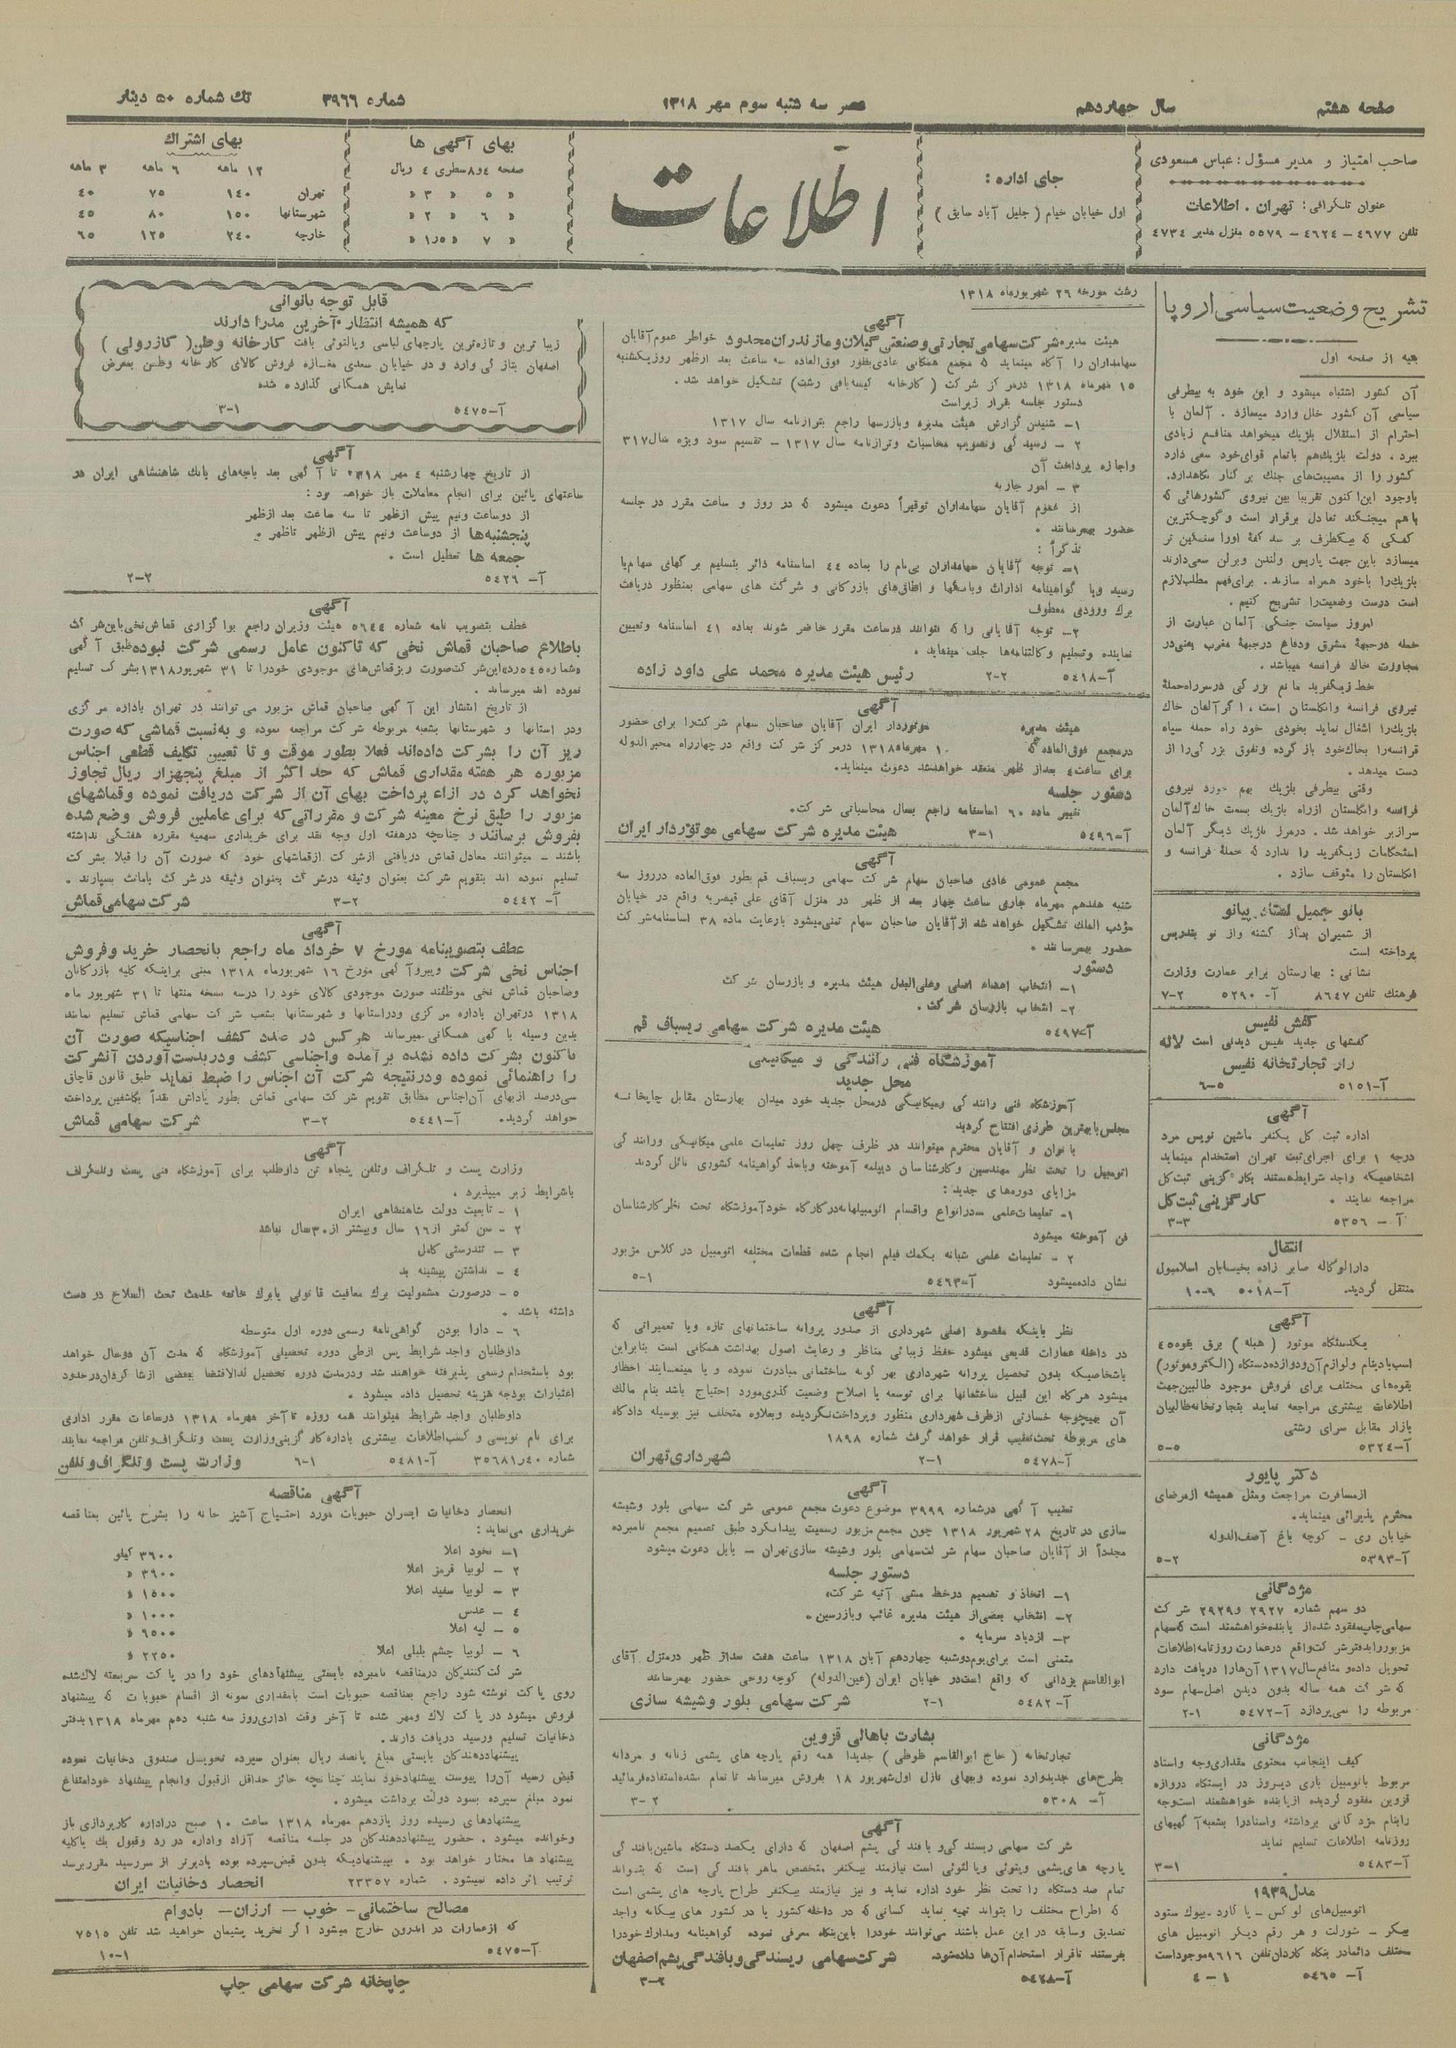 صفحه هشتم
سال چهاردهم
عصر سه شنبه سوم مهر ۱۳۱۸
شماره ۳۹۶۶
تك شماره ۵۰ دینار
صاحب امتیاز و مدیر مسؤل : عباس مسعودی
عنوان تلگرافی : تهران . اطلاعات
تلفن ۴۶۷۷ – ۴۶۲۴ – ۵۵۷۹ منزل مدیر ۴۷۳۴
جای اداره :
اول خیابان خیام ( جلیل آباد سابق )
اطلاعات
بهای آگهی ها
صفحه ۴و۸ سطری ۴ ریال
« ۵ « ۳ «
« ۶ « ۲ «
« ۷ « ۱٫۵ «
بهای اشتراك
۱۲ ماهه ۶ ماهه ۳ ماهه
تهران ۱۴۰ ۷۵ ۴۰
شهرستانها ۱۵۰ ۸۰ ۴۵
خارجه ۲۴۰ ۱۲۵ ۶۵
تشریح وضعیت سیاسی اروپا
بقیه از صفحه اول
آن کشور اشتباه میشود و این خود به بیطرفی
سیاسی آن کشور خلل وارد میسازد . آلمان با
احترام از استقلال بلژیك میخواهد منافع زیادی
ببرد . دولت بلژیك هم باتمام قوای خود سعی دارد
کشور را از مصیبت‌های جنك بر کنار نگاهدارد.
باوجود این اکنون تقریبا بین نیروی کشورهائی که
باهم میجنگند تعادل برقرار است و کوچکترین
کمکی که بیکطرف برسد کفهٔ اورا سنگین تر
میسازد باین جهت پاریس ولندن وبرلن سعی دارند
بلژیك را باخود همراه سازند. برای فهم مطلب لازم
است درست وضعیت را تشریح کنیم .
امروز سیاست جنگی آلمان عبارت از
حمله درجبههٔ مشرق ودفاع درجبههٔ مغرب یعنی در
مجاورت خاك فرانسه میباشد .
خط زیگفرید مانع بزرگی در سرراه حملهٔ
نیروی فرانسه وانگلستان است ، اگر آلمان خاك
بلژیك را اشغال نماید بخودی خود راه حمله سپاه
فرانسه را بخاك خود باز کرده وتفوق بزرگی را از
دست میدهد .
وقتی بیطرفی بلژیك بهم خورد نیروی
فرانسه وانگلستان ازراه بلژیك بسمت خاك آلمان
سرازیر خواهد شد . درمرز بلژیك دیگر آلمان
استحکامات زیگفرید را ندارد که حملهٔ فرانسه و
انگلستان را متوقف سازد .
بانو جمیل استاد پیانو
از شمیران بمدار گشته واز نو بتدریس
پرداخته است
نشانی : بهارستان برابر عمارت وزارت
فرهنك تلفن ۸۶۴۷ آ- ۵۲۹۰ ۲–۷
کفش نفیس
کفشهای جدید نفیس دیدنی است لاله
زار تجارتخانه نفیس
آ-۵۱۵۱ ۵–۶
آگهی
اداره ثبت کل یکنفر ماشین نویس مرد
درجه ۱ برای اجرای ثبت تهران استخدام مینماید
اشخاصیکه واجد شرایط هستند بکارگزینی ثبت کل
مراجعه نمایند . کارگزینی ثبت کل
آ – ۵۳۵۶ ۳–۳
انتقال
دارالوکاله صابر زاده بخیابان اسلامبول
منتقل گردید. آ-۵۰۱۸ ۹–۱۰
آگهی
یکدستگاه موتور ( هیله ) برق بقوه ۴۵
اسب بادینام ولوازم آن ودوازده دستگاه (الکتروموتور)
بقوه‌های مختلف برای فروش موجود طالبین جهت
اطلاعات بیشتری مراجعه نمایند بتجارتخانه طالبیان
بازار مقابل سرای رشتی
آ-۵۳۲۴ ۵–۵
دکتر پایور
از مسافرت مراجعت ومثل همیشه از مرضای
محترم پذیرائی مینماید.
خیابان ری – کوچه باغ آصف الدوله
آ-۵۳۹۳ ۲–۵
مژدگانی
دو سهم شماره ۲۹۲۷ و۲۹۲۹ شرکت
سهامی چاپ مفقود شده از یابنده خواهشمند است که سهام
مزبور را بدفتر شرکت واقع در عمارت روزنامه اطلاعات
تحویل داده و منافع سال ۱۳۱۷ آن‌ها را دریافت دارد
که شرکت همه ساله بدون دیدن اصل سهام سود
مربوطه را نمی‌پردازد آ-۵۴۷۲ ۱–۲
مژدگانی
کیف اینجانب محتوی مقداری وجه واسناد
مربوط باتومبیل باری دیروز در ایستگاه دروازه
قزوین مفقود گردیده از یابنده خواهشمند است وجه
را بنام مژدگانی برداشته واسناد را بشعبه آگهیهای
روزنامه اطلاعات تسلیم نماید
آ-۵۴۸۳ ۱–۳
مدل ۱۹۳۹
اتومبیل‌های لوکس – پاکارد – بیوك ستود
بیکر – شورلت و هر رقم دیگر اتومبیل های
مختلف دائما در بنگاه کاردان تلفن ۹۶۱۶ موجود است
آ- ۵۴۶۵ ۱–۴
رشت مورخه ۲۶ شهریورماه ۱۳۱۸
آگهی
هیئت مدیره شرکت سهامی تجارتی و صنعتی گیلان و مازندران محدود خواطر عموم آقایان
سهامداران را آگاه مینماید که مجمع همگانی عادی بطور فوق العاده سه ساعت بعد ازظهر روز یکشنبه
۱۵ مهرماه ۱۳۱۸ درمرکز شرکت ( کارخانه کیسه‌بافی رشت) تشکیل خواهد شد .
دستور جلسه بقرار زیر است
۱– شنیدن گزارش هیئت مدیره وبازرسها راجع بترازنامه سال ۱۳۱۷
۲ – رسیدگی وتصویب محاسبات وترازنامه سال ۱۳۱۷ – تقسیم سود ویژه سال ۳۱۷
واجازه پرداخت آن
۳ – امور جاریه
از عموم آقایان سهامداران توقیراً دعوت میشود که در روز و ساعت مقرر در جلسه
حضور بهمرسانند .
تذکراً :
۱– توجه آقایان سهامداران بی‌نام را بماده ۴۴ اساسنامه دائر بتسلیم برگهای سهام یا
رسید ویا گواهینامه ادارات وبانکها و اطاق‌های بازرگانی و شرکت های سهامی بمنظور دریافت
برك ورودی معطوف
۲– توجه آقایانی را که نتوانند در ساعت مقرر حاضر شوند بماده ۴۱ اساسنامه وتعیین
نماینده وتسلیم وکالتنامه‌ها جلب مینماید .
آ-۵۴۱۸ ۲–۲ رئیس هیئت مدیره محمد علی داود زاده
آگهی
هیئت مدیره موتوردار ایران آقایان صاحبان سهام شرکت را برای حضور
درمجمع فوق العاده که ۱۰ مهرماه ۱۳۱۸ درمرکز شرکت واقع در چهارراه مخبرالدوله
برای ساعت ۴ بعد از ظهر منعقد خواهد شد دعوت مینماید.
دستور جلسه
تغییر ماده ۶۰ اساسنامه راجع بسال محاسباتی شرکت.
آ-۵۴۹۶ ۱–۳ هیئت مدیره شرکت سهامی موتوردار ایران
آگهی
مجمع عمومی عادی صاحبان سهام شرکت سهامی ریسباف قم بطور فوق العاده در روز سه
شنبه هفدهم مهرماه جاری ساعت چهار بعد از ظهر در منزل آقای علی قیصریه واقع در خیابان
مؤدب الملك تشکیل خواهد شد از آقایان صاحبان سهام تمنی میشود بارعایت ماده ۳۸ اساسنامه شرکت
حضور بهمرسانند .
دستور
۱– انتخاب اعضاء اصلی وعلی البدل هیئت مدیره و بازرسان شرکت
۲– انتخاب بازرسان شرکت .
آ-۵۴۹۷ هیئت مدیره شرکت سهامی ریسباف قم
آموزشگاه فنی رانندگی و میکانیکی
محل جدید
آموزشگاه فنی رانندگی ومیکانیکی درمحل جدید خود میدان بهارستان مقابل چاپخانه
مجلس با بهترین طرزی افتتاح گردید
بانوان و آقایان محترم میتوانند در ظرف چهل روز تعلیمات علمی میکانیکی ورانندگی
اتومبیل را تحت نظر مهندسین وکارشناسان دیپلمه آموخته وباخذ گواهینامه کشوری نائل گردند
مزایای دوره‌های جدید :
۱– تعلیمات علمی سردرانواع واقسام اتومبیلها در کارگاه خود آموزشگاه تحت نظر کارشناسان
فن آموخته میشود
۲ – تعلیمات علمی شبانه بکمك فیلم انجام شده قطعات مختلفه اتومبیل در کلاس مزبور
نشان داده میشود آ-۵۴۶۳ ۱–۵
آگهی
نظر باینکه مقصود اصلی شهرداری از صدور پروانه ساختمانهای تازه ویا تعمیراتی که
در داخله عمارات قدیمی میشود حفظ زیبائی مناظر و رعایت اصول بهداشت همگانی است بنابراین
باشخاصیکه بدون تحصیل پروانه شهرداری بهر گونه ساختمانی مبادرت نموده و یا مینمایند اخطار
میشود هرگاه این قبیل ساختمانها برای توسعه یا اصلاح وضعیت گذری مورد احتیاج باشد بنام مالك
آن بهیچوجه خسارتی ازطرف شهرداری منظور وپرداخت نگردیده وبعلاوه متخلف نیز بوسیله دادگاه
های مربوطه تحت تعقیب قرار خواهد گرفت شماره ۱۸۹۸
آ-۵۴۷۸ ۱–۲ شهرداری تهران
آگهی
تعقیب آگهی درشماره ۳۹۹۹ موضوع دعوت مجمع عمومی شرکت سهامی بلور وشیشه
سازی در تاریخ ۲۸ شهریور ۱۳۱۸ چون مجمع مزبور رسمیت پیدانکرد طبق تصمیم مجمع نامبرده
مجدداً از آقایان صاحبان سهام شرکت سهامی بلور وشیشه سازی تهران – بابل دعوت میشود
دستور جلسه
۱– اتخاذ و تصمیم درخط مشی آتیه شرکت.
۲– انتخاب بعضی از هیئت مدیره غائب وبازرسین .
۳– ازدیاد سرمایه .
متمنی است برای یوم دوشنبه چهاردهم آبان ۱۳۱۸ ساعت هفت بعد از ظهر درمنزل آقای
ابوالقاسم یزدانی که واقع است در خیابان ایران (عین الدوله) کوچه روحی حضور بهمرسانند
آ-۵۴۸۲ ۱–۲ شرکت سهامی بلور وشیشه سازی
بشارت باهالی قزوین
تجارتخانه ( حاج ابوالقاسم طوطی ) جدیدا همه رقم پارچه های پشمی زنانه و مردانه
بطرح‌های جدید وارد نموده وببهای نازل اول شهریور ۱۸ بفروش میرساند تا تمام نشده استفاده فرمائید
آ- ۵۳۰۸ ۲–۳
آگهی
شرکت سهامی ریسندگی و بافندگی پشم اصفهان که دارای یکصد دستگاه ماشین بافندگی
پارچه های پشمی وپتوئی و پالتوئی است نیازمند بیکنفر متخصص ماهر بافندگی است که بتواند
تمام صد دستگاه را تحت نظر خود اداره نماید و نیز نیازمند بیکنفر طراح پارچه های پشمی است
که اطراح مختلف را بتواند تهیه نماید کسانی که در داخله کشور یا در کشور های بیگانه واجد
تصدیق وسابقه در این عمل باشند می‌توانند خود را باین بنگاه معرفی نموده گواهینامه ومدارك خود را
بفرستند تا قرار استخدام آن‌ها داده شود. شرکت سهامی ریسندگی و بافندگی پشم اصفهان
آ-۵۴۲۸ ۲–۳
قابل توجه بانوانی
که همیشه انتظار آخرین مد را دارند
زیبا ترین و تازه ترین پارچه‌ای لباسی وپالتوئی بافت کارخانه وطن ( کازرونی )
اصفهان بتازگی وارد و در خیابان سعدی مغازه فروش کالای کارخانه وطن بمعرض
نمایش همگانی گذارده شده
آ-۵۴۷۵ ۱–۳
آگهی
از تاریخ چهارشنبه ۴ مهر ۱۳۱۸ تا آگهی بعد باجه‌های بانك شاهنشاهی ایران در
ساعتهای پائین برای انجام معاملات باز خواهد بود :
از دوساعت ونیم پیش ازظهر تا سه ساعت بعد ازظهر
پنجشنبه‌ها از دوساعت ونیم پیش ازظهر تاظهر .
جمعه ها تعطیل است .
آ- ۵۴۲۶ ۲–۲
آگهی
عطف بتصویب نامه شماره ۵۶۴۴ هیئت وزیران راجع بواگزاری قماش نخی باین شرکت
باطلاع صاحبان قماش نخی که تاکنون عامل رسمی شرکت نبوده طبق آگهی
«شماره ۵۴۵ رد» این شرکت صورت ریز قماش‌های موجودی خود را تا ۳۱ شهریور ۱۳۱۸ بشرکت تسلیم
نموده اند میرساند .
از تاریخ انتشار این آگهی صاحبان قماش مزبور می توانند در تهران باداره مرکزی
ودر استانها و شهرستانها بشعبه مربوطه شرکت مراجعه نموده و به‌نسبت قماشی که صورت
ریز آن را بشرکت داده‌اند فعلا بطور موقت و تا تعیین تکلیف قطعی اجناس
مزبوره هر هفته مقداری قماش که حد اکثر از مبلغ پنجهزار ریال تجاوز
نخواهد کرد در ازاء پرداخت بهای آن از شرکت دریافت نموده وقماشهای
مزبور را طبق نرخ معینه شرکت و مقرراتی که برای عاملین فروش وضع شده
بفروش برسانند و چنانچه درهفته اول وجه نقد برای خریداری سهمیه مقرره هفتگی نداشته
باشند – میتوانند معادل قماش دریافتی از شرکت از قماشهای خود که صورت آن را قبلا بشرکت
تسلیم نموده اند بتقویم شرکت بعنوان وثیقه درشرکت بعنوان وثیقه در شرکت بامانت بسپارند .
آ- ۵۴۴۲ ۲–۳ شرکت سهامی قماش
آگهی
عطف بتصویبنامه مورخ ۷ خرداد ماه راجع بانحصار خرید و فروش
اجناس نخی شرکت وپیرو آگهی مورخ ۱۶ شهریورماه ۱۳۱۸ مبنی براینکه کلیه بازرگانان
وصاحبان قماش نخی موظفند صورت موجودی کالای خود را درسه نسخه منتها تا ۳۱ شهریور ماه
۱۳۱۸ درتهران باداره مرکزی ودراستانها و شهرستانها بشعب شرکت سهامی قماش تسلیم نمایند
بدین وسیله با گهی همگانی میرساند هر کس در صدد کشف اجناسیکه صورت آن
تاکنون بشرکت داده نشده برآمده واجناسی کشف ودربدست آوردن آن شرکت
را راهنمائی نموده ودرنتیجه شرکت آن اجناس را ضبط نماید طبق قانون قاچاق
سی درصد ازبهای آن اجناس مطابق تقویم شرکت سهامی قماش بطور پاداش نقداً بکاشفین پرداخت
خواهد گردید. آ-۵۴۴۱ ۲–۳ شرکت سهامی قماش
آگهی
وزارت پست و تلگراف وتلفن پنجاه تن داوطلب برای آموزشگاه فنی پست وتلگراف
باشرایط زیر میپذیرد .
۱ – تابعیت دولت شاهنشاهی ایران
۲ – سن کمتر از۱۶ سال وبیشتر از۳۰ سال نباشد
۳ – تندرستی کامل
۴ – نداشتن پیشینه بد
۵ – درصورت مشمولیت برك معافیت قانونی یابرك خاتمه خدمت تحت السلاح در دست
داشته باشد .
۶ – دارا بودن گواهی‌نامه رسمی دوره اول متوسطه
داوطلبان واجد شرایط پس ازطی دوره تحصیلی آموزشگاه که مدت آن دوسال خواهد
بود باستخدام رسمی پذیرفته خواهند شد ودرمدت دوره تحصیل لدالاقتضا ببعضی ازشاگردان درحدود
اعتبارات بودجه هزینه تحصیل داده میشود .
داوطلبان واجد شرایط میتوانند همه روزه تا آخر مهرماه ۱۳۱۸ درساعات مقرر اداری
برای نام نویسی و کسب اطلاعات بیشتری باداره کارگزینی وزارت پست وتلگراف وتلفن مراجعه نمایند
شماره ۴۰ر۳۵۶۸۱ آ-۵۴۸۱ ۱–۶ وزارت پست وتلگراف و تلفن
آگهی مناقصه
انحصار دخانیات ایران حبوبات مورد احتیاج آشپز خانه را بشرح پائین بمناقصه
خریداری می‌نماید :
۱– نخود اعلا ۳۶۰۰ کیلو
۲ – لوبیا قرمز اعلا ۳۹۰۰ «
۳ – لوبیا سفید اعلا ۱۵۰۰ «
۴ – عدس ۱۰۰۰ «
۵ – لپه اعلا ۶۵۰۰ «
۶ – لوبیا چشم بلبلی اعلا ۲۲۵۰ «
شرکت کنندگان درمناقصه نامبرده بایستی پیشنهادهای خود را در پاکت سربسته لاك شده
روی پاکت نوشته شود راجع بمناقصه حبوبات است بامقداری نمونه از اقسام حبوبات که پیشنهاد
فروش میشود در پاکت لاك ومهر شده تا آخر وقت اداری روز سه شنبه دهم مهرماه ۱۳۱۸ بدفتر
دخانیات تسلیم ورسید دریافت دارند.
پیشنهاددهندگان بایستی مبلغ پانصد ریال بعنوان سپرده تحویل صندوق دخانیات نموده
قبض رسید آن را پیوست پیشنهاد خود نمایند چنانچه حائز حداقل ازقبول وانجام پیشنهاد خود امتناع
نمود مبلغ سپرده بسود دولت برداشت میشود .
پیشنهادهای رسیده روز یازدهم مهرماه ۱۳۱۸ ساعت ۱۰ صبح دراداره کارپردازی باز
وخوانده میشود . حضور پیشنهاددهندگان در جلسه مناقصه آزاد واداره در رد وقبول یك یا کلیه
پیشنهاد ها مختار خواهد بود . پیشنهادیکه بدون قبض سپرده بوده یا دیرتر از سررسید مقرر برسد
ترتیب اثر داده نمیشود . شماره ۲۳۳۵۷ انحصار دخانیات ایران
مصالح ساختمانی – خوب – ارزان – بادوام
که از عمارات در اندرون خارج میشود اگر نخرید پشیمان خواهید شد تلفن ۷۵۱۵
آ-۵۴۷۵ ۱–۱۰
چاپخانه شرکت سهامی چاپ